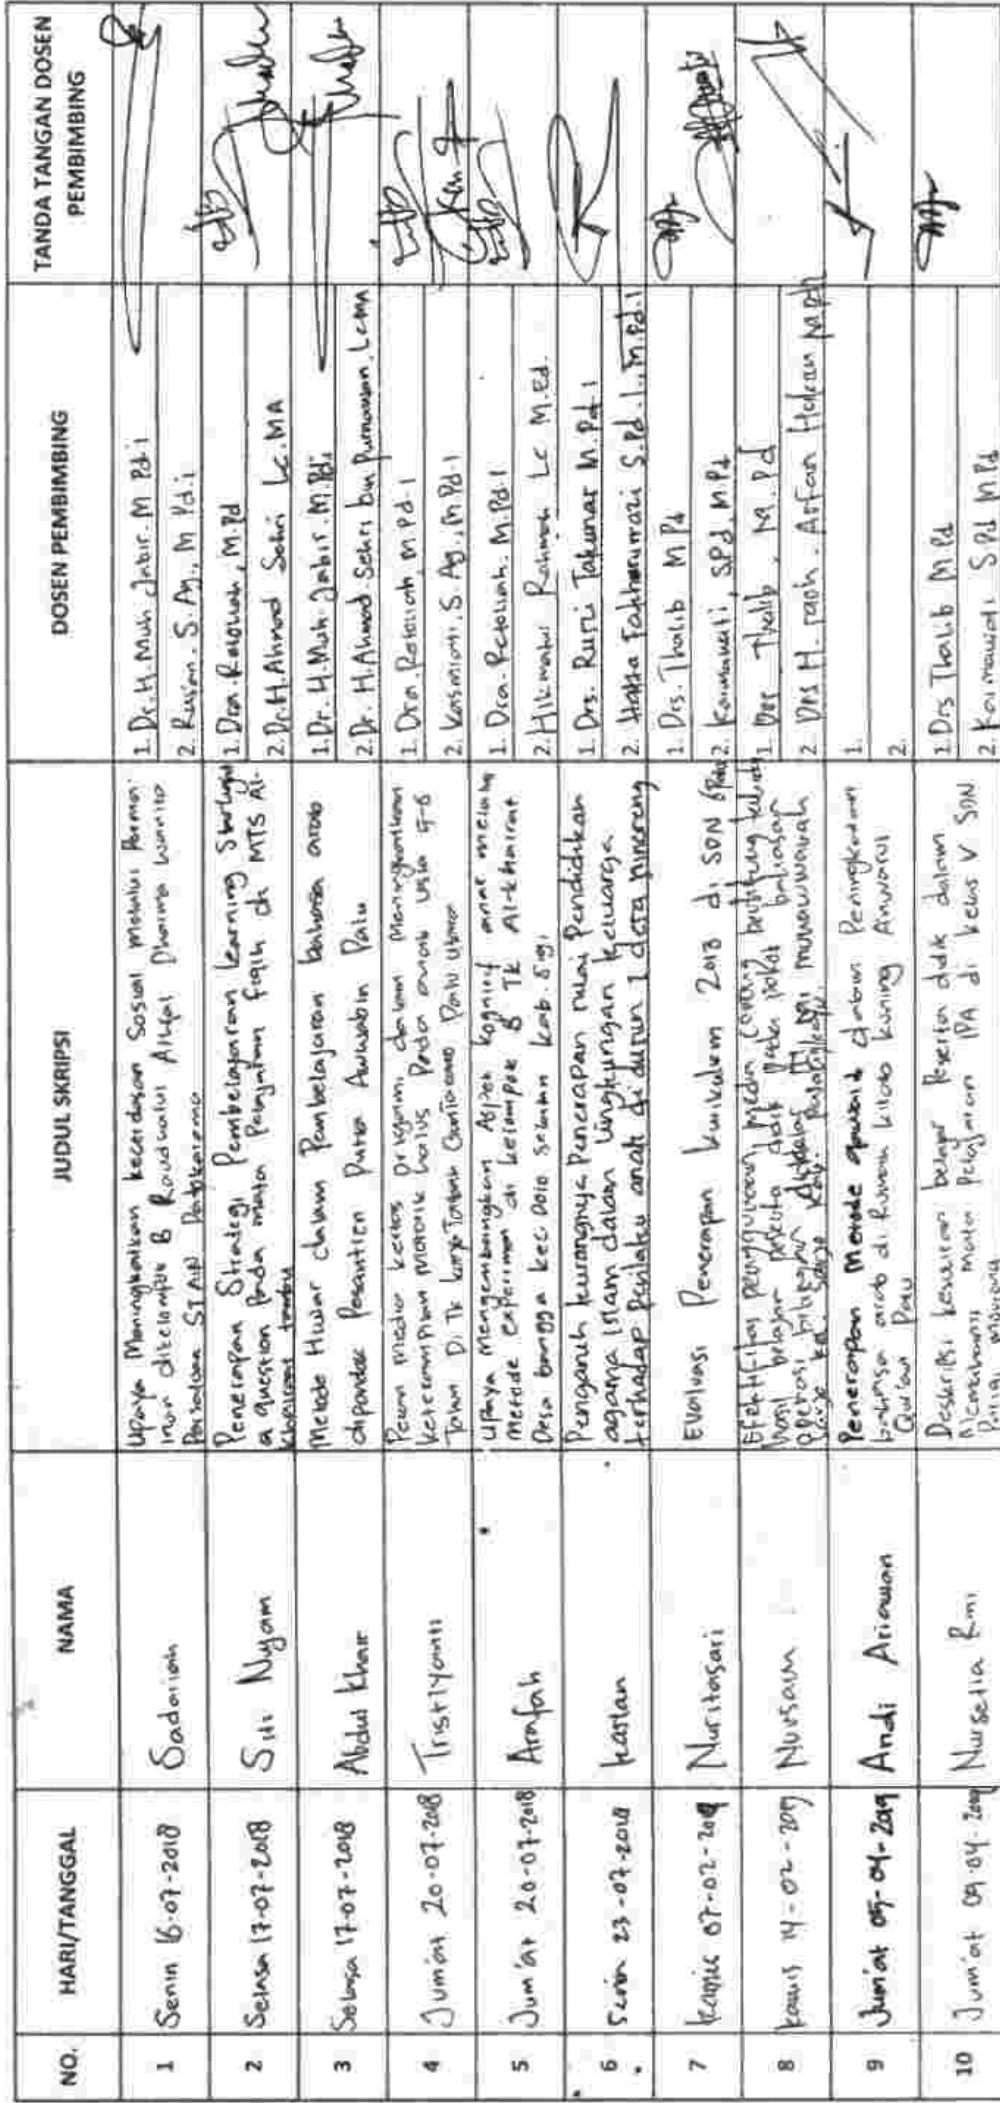 NO.
HARI/TANGGAL
NAMA
JUDUL SKRIPSI
DOSEN PEMBIMBING
TANDA TANGAN DOSEN
PEMBIMBING
1
Senin 16-07-2018
Sadariah
Upaya Meningkatkan kecerdasan Sosial melalui
dikelompok B Raudhatul Athfal Dharma Wanita
Persatuan STAIN Datokarama
1. Dr. H. Muh. Jabir. M Pd.i
2. Rusan. S. Ag., M Pd.i
2
Selasa 17-07-2018
Siti Nyam
Penerapan Strategi Pembelajaran Learning Starting
a question Pada mata Pelajaran fiqih di MTS Al-
Khairaat
1. Dra. Retoliah, M.Pd
2. Dr. H. Ahmad Sehri Lc. MA
3
Selasa 17-07-2018
Abdul Khair
Metode Hiwar dalam Pembelajaran bahasa arab
dipondok Pesantren Putra Awwabin Palu
1. Dr. H. Muh. Jabir. M.Pdi
2. Dr. H. Ahmad Sehri bin Punawan, Lc MA
4
Jum'at 20-07-2018
Tristiyanti
Peran media kertas Origami dalam Meningkatkan
Keterampilan Motorik halus Pada anak usia 5-6
Tahun Di Tk Palu Utara
1. Dra. Retoliah M Pd.I
2. Kasmiati. S. Ag., M Pd.I
5
Jum'at 20-07-2018
Arafah
Upaya Mengembangkan Aspek kognitif anak melalui
Metode experimen di kelompok B TK Al-Khairat
Desa kec Dolo Selatan kab. Sigi
1. Dra. Retoliah. M.Pd.I
2. Hikmatul Rahmah Lc M.Ed.
6
Senin 23-07-2018
kaslan
Pengaruh kurangnya Penerapan nilai Pendidikan
agama Islam dalam lingkungan keluarga
terhadap Perilaku anak di dusun 1 desa
1. Drs. Rusli Takunas M.Pd.I
2. Hatta Fakhrurrozi S.Pd.I., M.Pd.I
7
Kamis 07-02-2019
Nuritasari
Evaluasi Penerapan kurikulum 2013 di SDN 6 Palu
1. Drs. Thalib M Pd
2. S.Pd, M Pd
8
kamis 14-02-2019
Nursam
Efektifitas penggunaan media
hasil belajar peserta didik pada pokok bahasan
operasi bilangan
1. Drs Thalib, M.Pd
2. Drs H. Moh. Arfan Hakim
9
Jum'at 05-04-2019
Andi Ariawan
Penerapan Metode qawaid dalam Peningkatan
bahasa arab di Rumah kitab kuning Anwarul
Qur'an Palu
1.
2.
10
Jum'at 09-04-2019
Nurselia Rmi
Deskripsi kesulitan belajar Peserta didik dalam
Memahami Mata Pelajaran IPA di kelas V SDN
1. Drs Thalib M Pd
2. S Pd M Pd